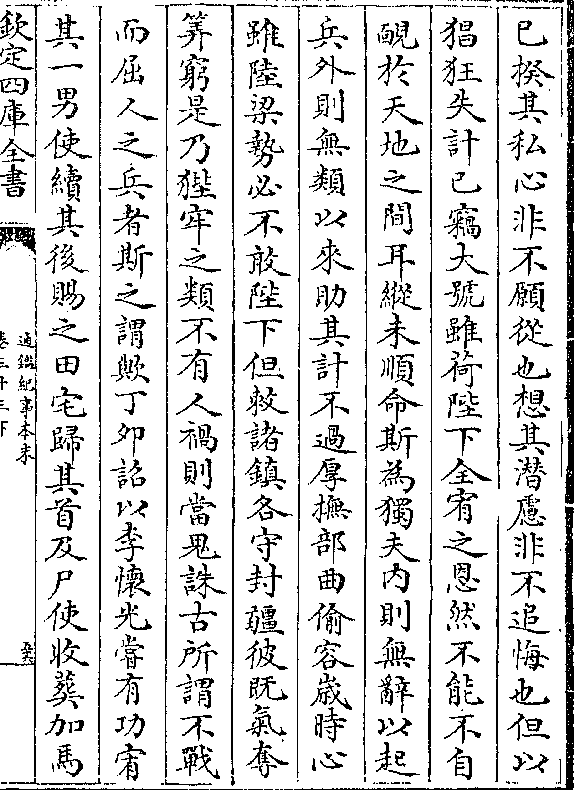 已揆其私心非不願從也想其潛慮非不追悔也但以
猖狂失計已竊大號雖荷陛下全宥之恩然不能不自
靦於天地之間耳縱未順命斯為獨夫内則無辭以起
兵外則無類以來助其計不過厚撫部曲偷容歲時心
雖陸梁勢必不敢陛下但敕諸鎮各守封疆彼既氣奪
筭窮是乃狴牢之類不有人禍則當鬼誅古所謂不戰
而屈人之兵者斯之謂歟丁卯詔以李懷光嘗有功宥
其一男使續其後賜之田宅歸其首及尸使收葬加馬
欽定四庫全書
通鑑紀事本末
卷三十三下